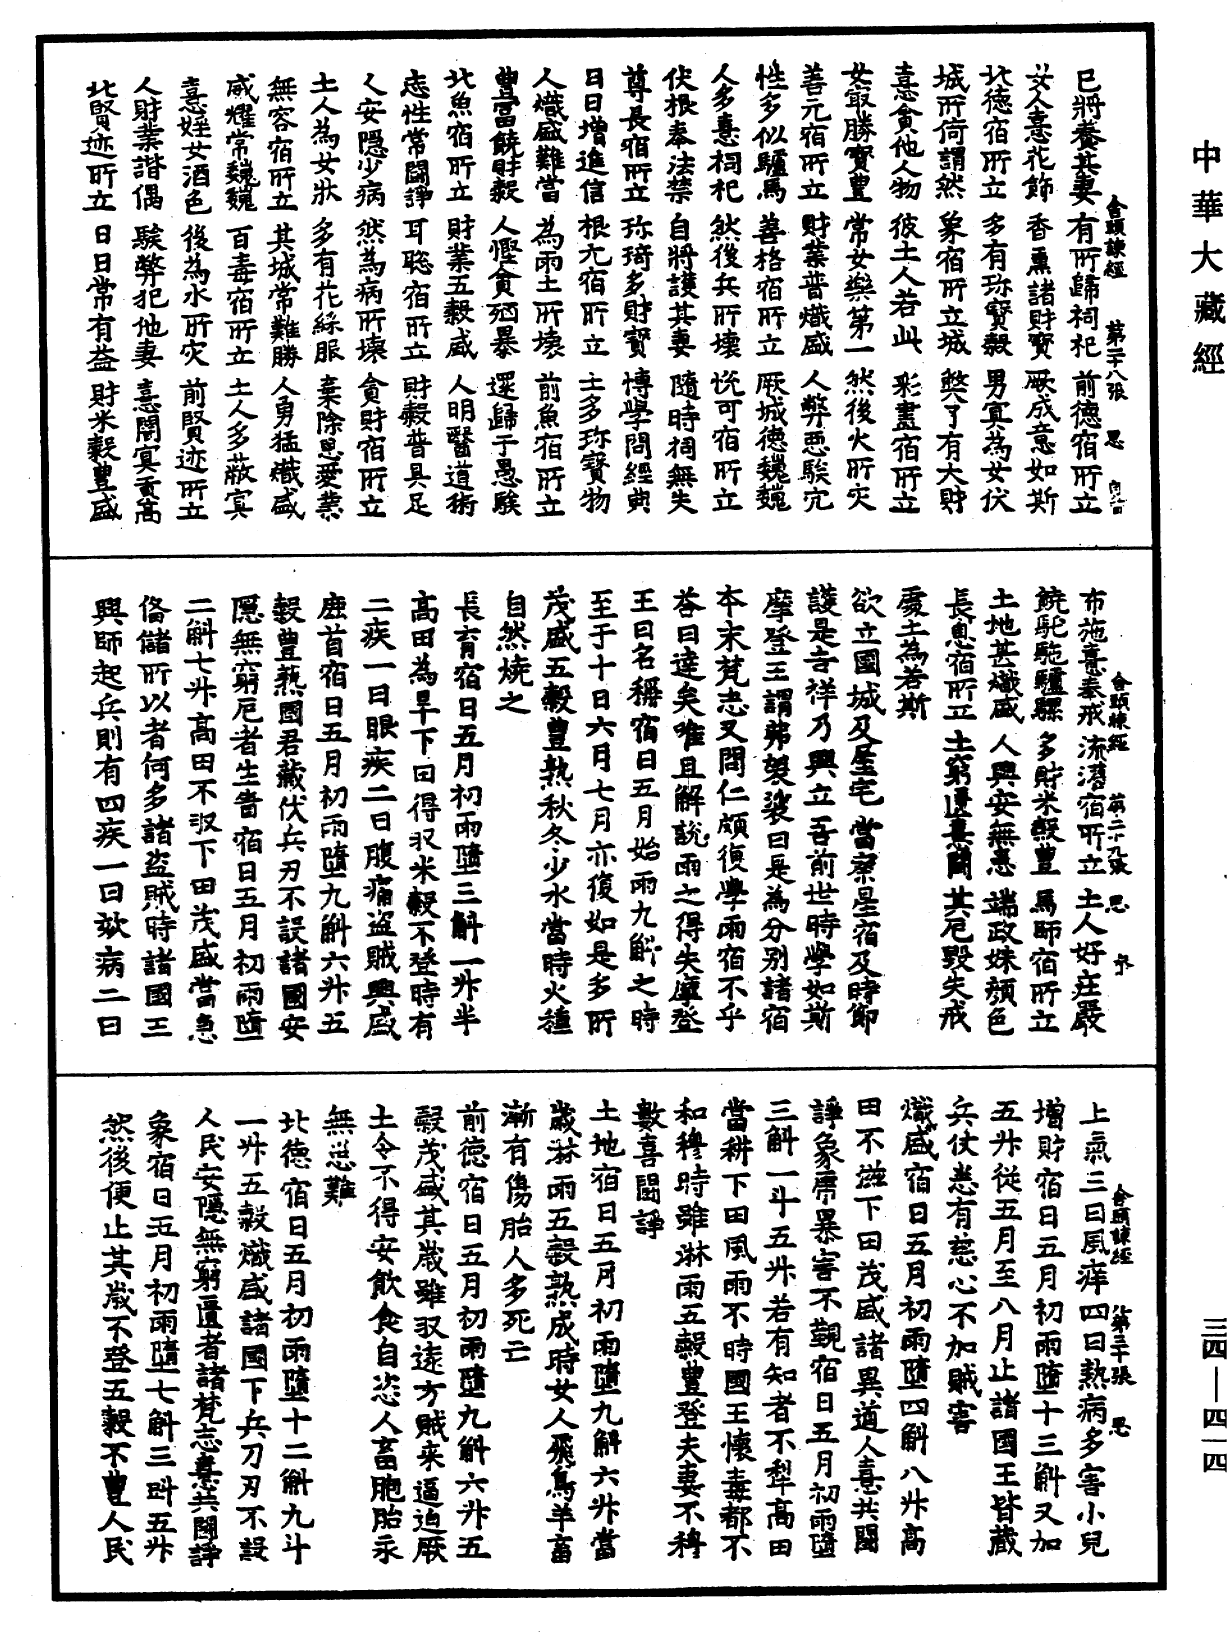 中華大藏經
舍頭諫經　第二十八張　思
已將養其妻　有所歸祠祀　前德宿所立
女人憙花飾　香熏諸財寶　厥成意如斯
北德宿所立　多有珍寶穀　男寡為女伏
城所倚謂然　象宿所立城　弊了有大財
憙貪他人物　彼土人若此　彩畫宿所立
女最勝寶豐　常女樂第一　然後火所灾
善元宿所立　財業普熾盛　人弊惡騃宂
性多似驢馬　善格宿所立　厥城德巍巍
人多憙祠祀　然後兵所壞　悅可宿所立
伏根奉法禁　自將護其妻　隨時祠無失
尊長宿所立　珍琦多財寶　博學問經典
日日增進信　根元宿所立　土多珍寶物
人熾盛難當　為雨土所壞　前魚宿所立
豐當饒財穀　人慳貪𣧑暴　還歸于愚騃
北魚宿所立　財業五穀盛　人明醫道術
志性常鬪諍　耳聡宿所立　財穀普具足
人安隱少病　然為病所壞　貪財宿所立
土人為女狀　多有花綵服　棄除恩愛業
無容宿所立　其城常難勝　人勇猛熾盛
威耀常巍巍　百毒宿所立　土人多蔽寡
憙婬女酒色　後為水所灾　前賢迹所立
人財業諧偶　騃弊犯他妻　憙鬧寡貢高
北賢迹所立　日日常有益　財米穀豐盛
舍頭諫經　第二十九張　思
布施憙奉戒　流灌宿所立　土人好庄嚴
饒駝驢騾　多財米穀豐　馬師宿所立
土地甚熾盛　人興安無恙　端政姝顏色
長息宿所立　土窮匱憙鬪　其厄毀失戒
處土為若斯
欲立國城及屋宅　當察星宿及時節
護是吉祥乃興立　吾前世時學如斯
摩登王謂弗袈裟曰是為分別諸宿
本末梵志又問仁頗復學雨宿不乎
荅曰達矣唯且解說雨之得失摩登
王曰名稱宿日五月始雨九斛之時
至于十日六月七月亦復如是多所
茂盛五穀豐熟秋冬少水當時火種
自然燒之
長育宿日五月初雨墮三斛一升半
高田為旱下田得収米穀不登時有
二疾一曰眼疾二曰腹痛盗賊興盛
鹿首宿日五月初雨墮九斛六升五
穀豐熟國君藏伏兵刃不設諸國安
隱無窮厄者生眚宿日五月初雨墮
二斛七升高田不収下田茂盛當急
俻儲所以者何多諸盗賊時諸國王
興師起兵則有四疾一曰欬病二曰
舍頭諫經　第三十張　思
上氣三曰風痒四曰熱病多害小兒
增財宿日五月初雨墮十三斛又加
五升從五月至八月止諸國王皆藏
兵仗悉有慈心不加賊害
熾盛宿日五月初雨墮四斛八升高
田不滋下田茂盛諸異道人憙共鬪
諍象虎暴害不覲宿日五月初雨墮
三斛一斗五升若有知者不犁高田
當耕下田風雨不時國王懷毒都不
和穆時雖淋雨五穀豐登夫妻不穆
數喜鬪諍
土地宿日五月初雨墮九斛六升當
歲淋雨五穀熟成時女人飛鳥羊畜
漸有傷胎人多死亡
前德宿日五月初雨墮九斛六升五
穀茂盛其歲雖収遠方賊来逼迫厥
土令不得安飲食自恣人畜胞胎永
無恐難
北德宿日五月初雨墮十二斛九斗
一升五穀熾盛諸國下兵刀刃不設
人民安隱無窮匱者諸梵志憙共鬪諍
象宿日五月初雨墮七斛三斗五升
然後便止其歲不登五穀不豐人民
三四—四一四